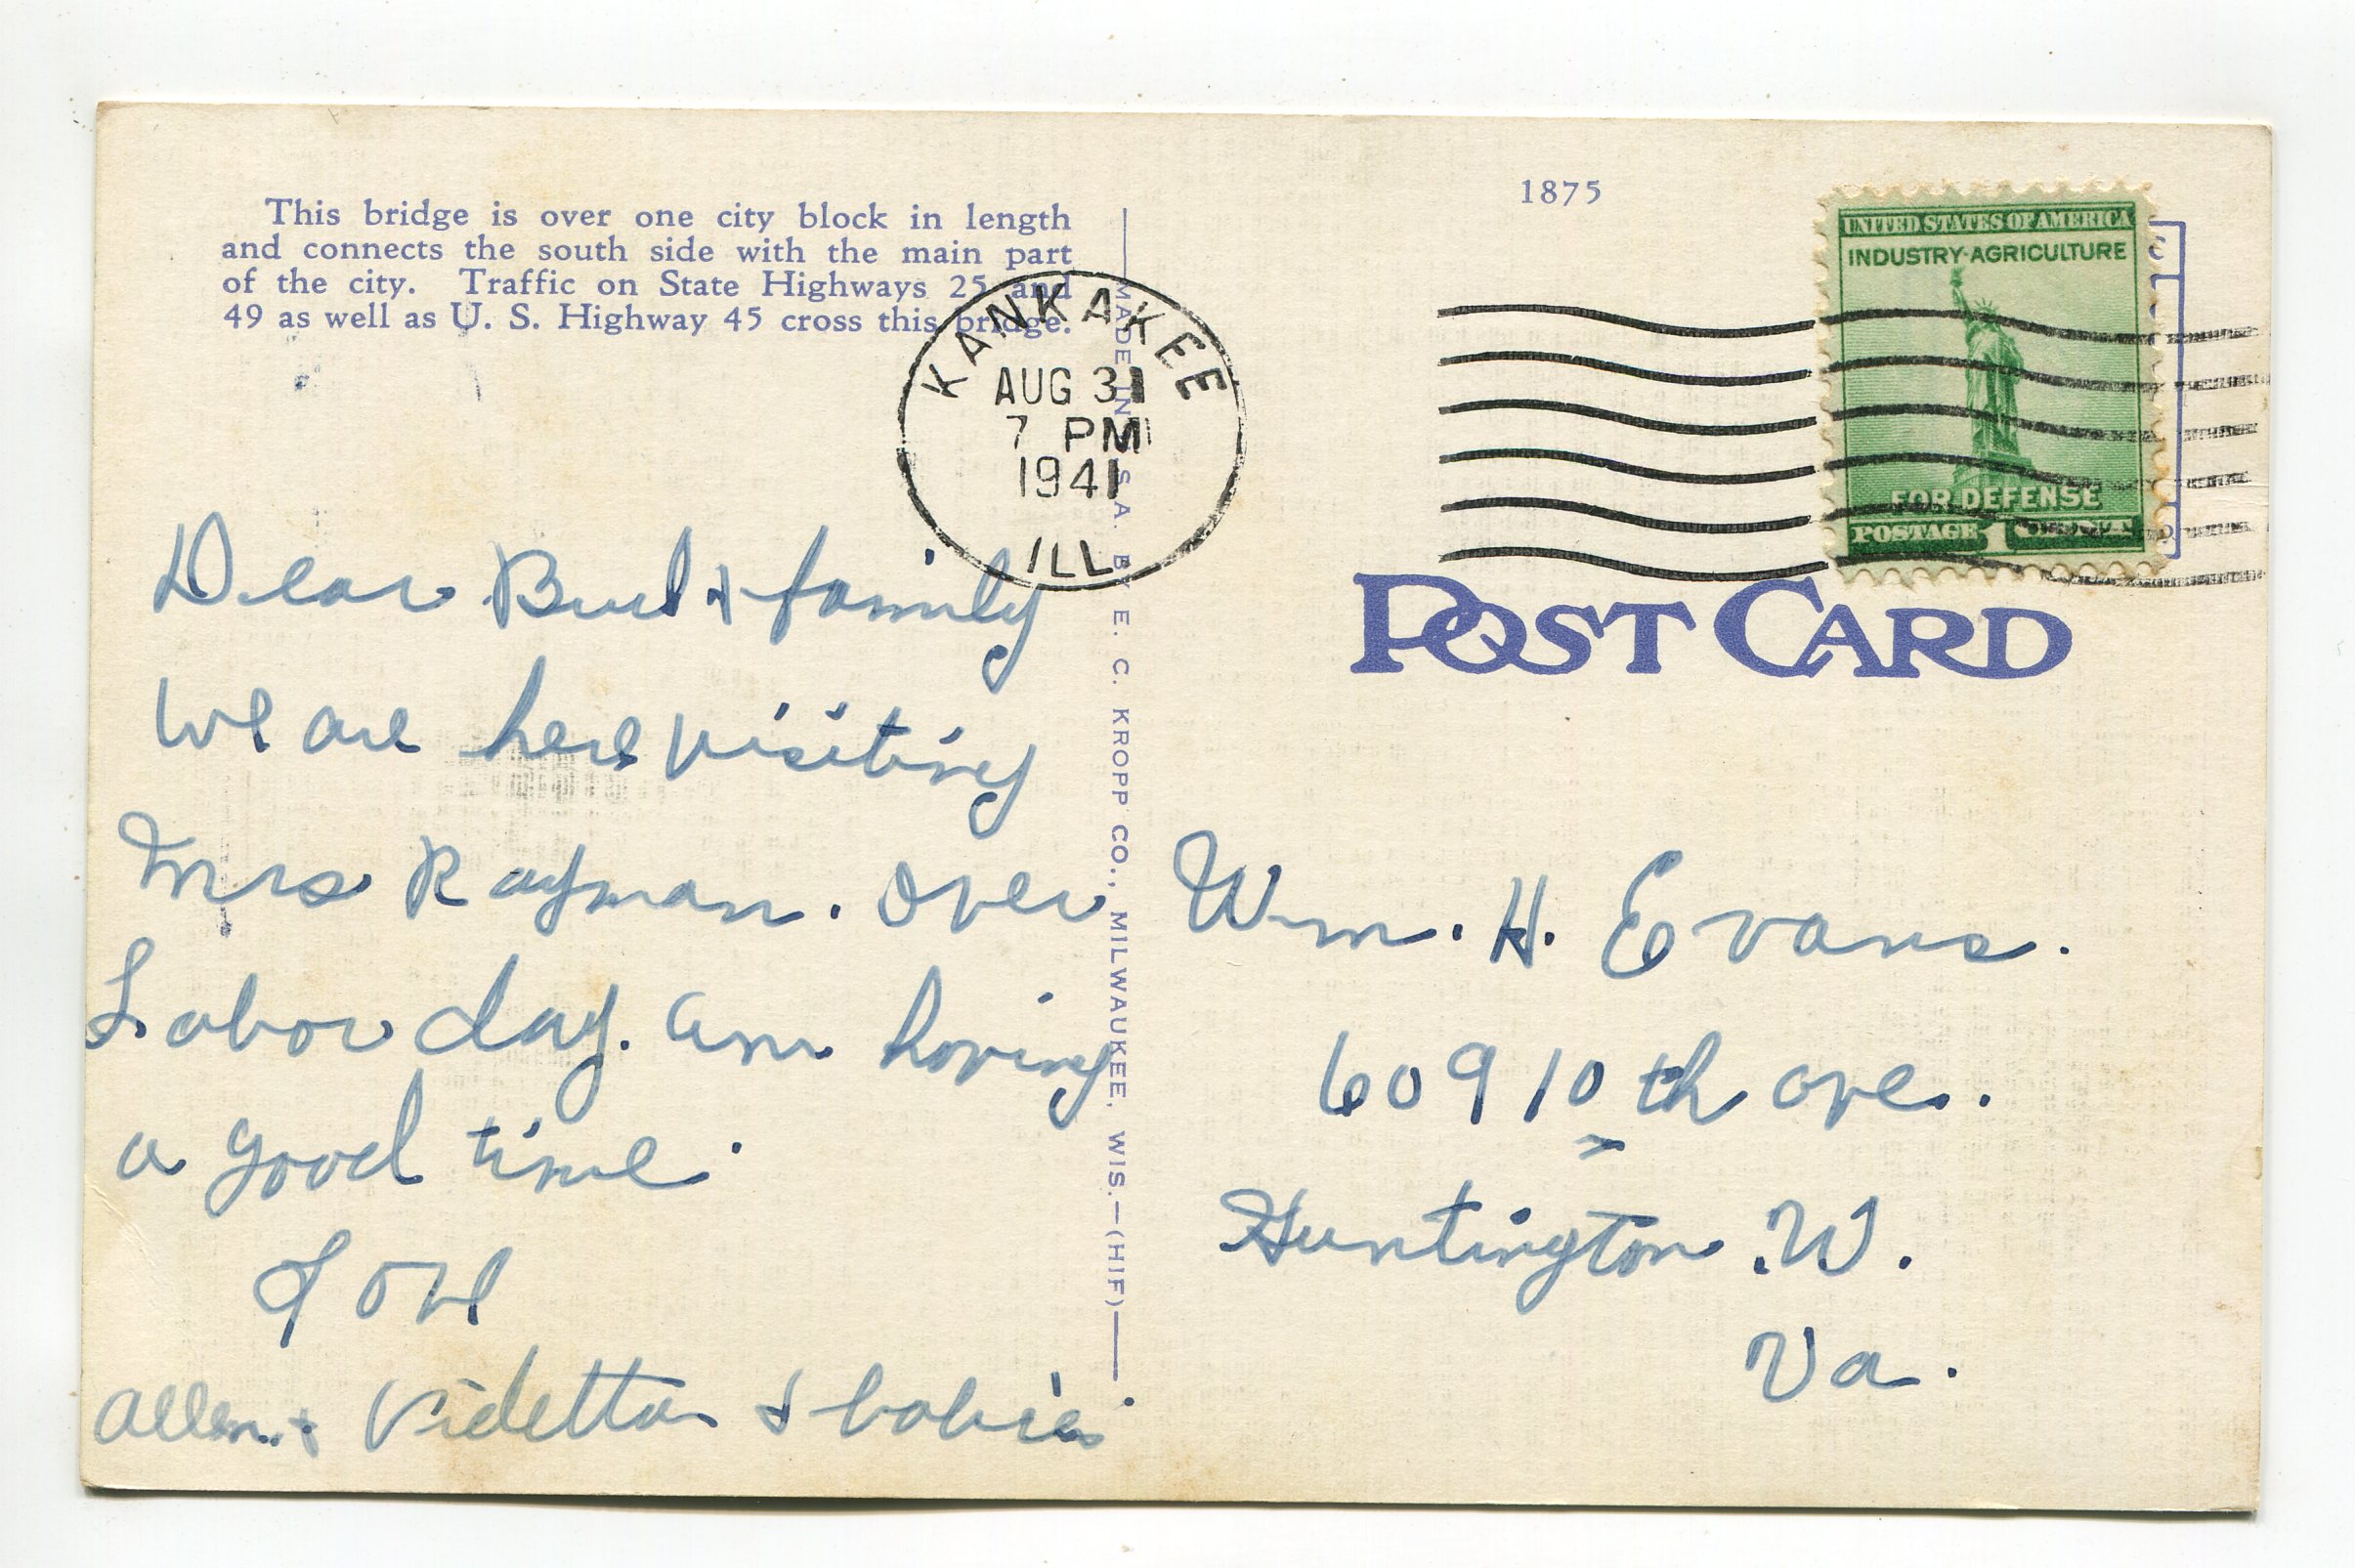 This bridge is over one city block in length
and connects the south side with the main part
of the city. Traffic on State Highways 25 and
49 as well as U. S. Highway 45 cross this bridge.
KANKAKEE
AUG 31
7 PM
1941
ILL.
Dear Bud & family
We are here visiting
Mrs Rayman. over
Labor day. am having
a good time.
Allen & Videtta & babies
MADE IN U.S.A. BY E. C. KROPP CO., MILWAUKEE, WIS.—(HIF)
1875
UNITED STATES OF AMERICA
INDUSTRY·AGRICULTURE
FOR DEFENSE
POSTAGE 1
POST CARD
Wm. H. Evans.
609 10th ave.
Huntington .W.
Va.